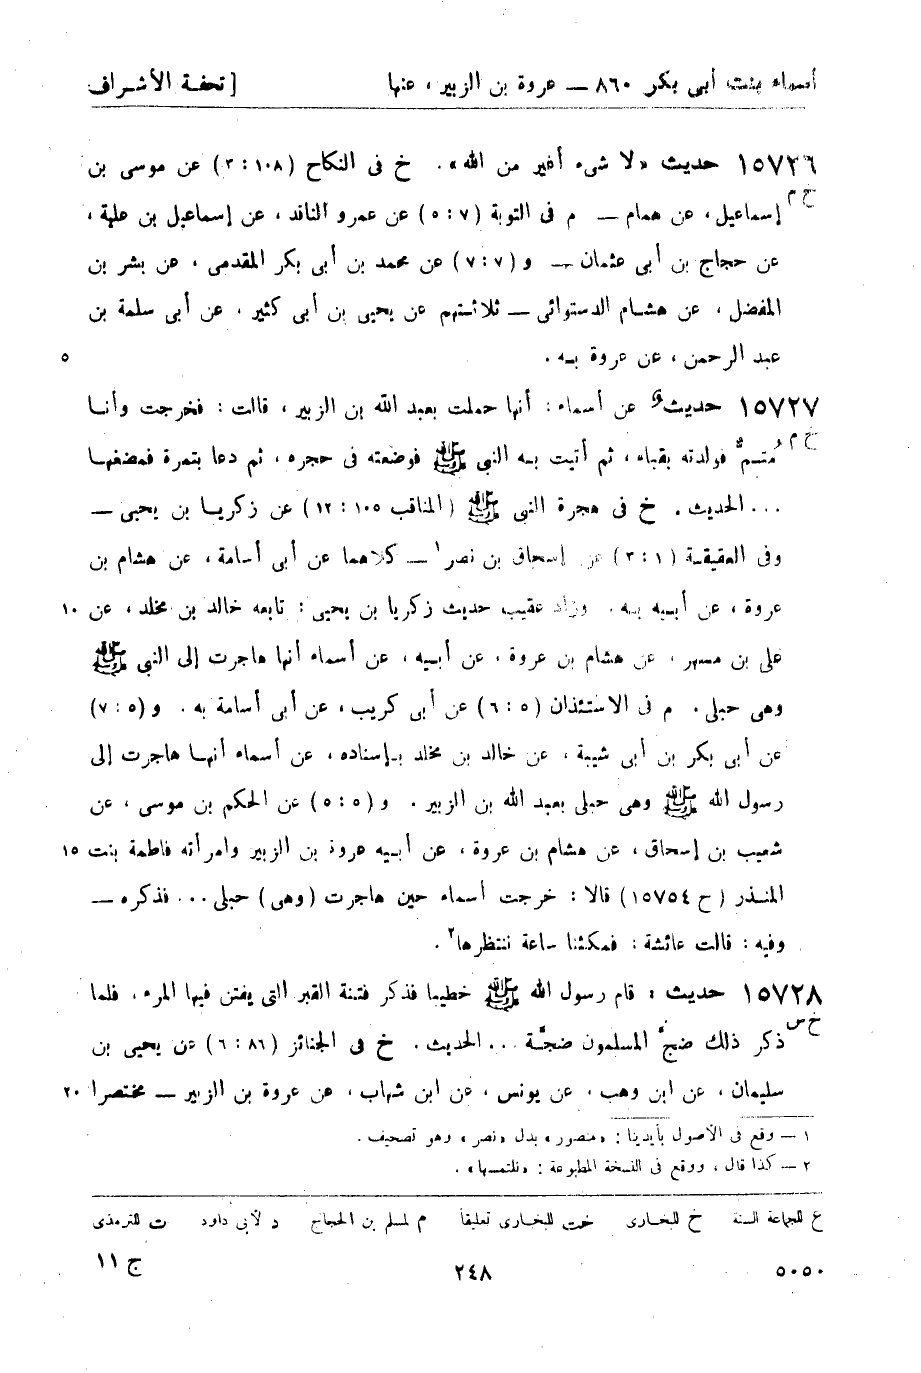 أسماء بنت أبى بكر ٨٦٠ — عروة بن الزبير ، عنها [ تحفة الأشراف
١٥٧٢٦ حديث «لا شىء أغير من الله». خ فى النكاح (١٠٨ : ٣) عن موسى بن
خ م
إسماعيل ، عن همام — م فى التوبة (٧ : ٥) عن عمرو الناقد ، عن إسماعيل بن علية ،
عن حجاج بن أبى عثمان — و (٧ : ٧) عن محمد بن أبى بكر المقدمى ، عن بشر بن
المفضل ، عن هشام الدستوائى — ثلاثتهم عن يحيى بن أبى كثير ، عن أبى سلمة بن
عبد الرحمن ، عن عروة به . ٥
١٥٧٢٧ حديث عن أسماء : أنها حملت بعبد الله بن الزبير ، قالت : فخرجت وأنا
خ م
مُتمٌّ فولدته بقباء ، ثم أتيت به النبى ﷺ فوضعته فى حجره ، ثم دعا بتمرة فمضغها
... الحديث . خ فى هجرة النبى ﷺ (المناقب ١٠٥ : ١٢) عن زكريا بن يحيى —
وفى العقيقة (١ : ٣) عن إسحاق بن نصر١ — كلاهما عن أبى أسامة ، عن هشام بن
عروة ، عن أبيه به . وزاد عقيب حديث زكريا بن يحيى : تابعه خالد بن مخلد ، عن ١٠
على بن مسهر ، عن هشام بن عروة ، عن أبيه ، عن أسماء أنها هاجرت إلى النبى ﷺ
وهى حبلى . م فى الاستئذان (٥ : ٦) عن أبى كريب ، عن أبى أسامة به . و (٥ : ٧)
عن أبى بكر بن أبى شيبة ، عن خالد بن مخلد بإسناده ، عن أسماء أنها هاجرت إلى
رسول الله ﷺ وهى حبلى بعبد الله بن الزبير . و (٥ : ٥) عن الحكم بن موسى ، عن
شعيب بن إسحاق ، عن هشام بن عروة ، عن أبيه عروة بن الزبير وامرأته فاطمة بنت ١٥
المنذر (ح ١٥٧٥٤) قالا : خرجت أسماء حين هاجرت (وهى) حبلى ... فذكره —
وفيه : قالت عائشة : فمكثنا ساعة ننتظرها٢ .
١٥٧٢٨ حديث : قام رسول الله ﷺ خطيبا فذكر فتنة القبر التى يفتن فيها المرء ، فلما
خ س
ذكر ذلك ضجَّ المسلمون ضجَّة ... الحديث . خ فى الجنائز (٨٦ : ٦) عن يحيى بن
سليمان ، عن ابن وهب ، عن يونس ، عن ابن شهاب ، عن عروة بن الزبير — مختصرا ٢٠
١ — وقع فى الأصول بأيدينا : «منصور» بدل «نصر» وهو تصحيف .
٢ — كذا قال ، ووقع فى النسخة المطبوعة : «نلتمسها» .
ع للجماعة الستة خ للبخارى خت للبخارى تعليقاً م لمسلم بن الحجاج د لأبى داود ت للترمذى
٥٠٥٠ ٢٤٨ ج ١١